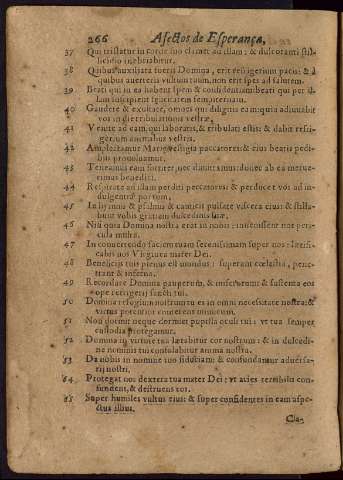 266 Afectos de Esperança,
37 Qui tristatur in corde suo clamet ad illam: & dulcoranti stil-
licidio inebriabitur.
38 Quibus auxiliata fuerit Domina, erit refrigerium pacis: & à
quibus auerteris vultum tuum, non erit spes ad salutem.
39 Beati qui in ea habent spem & confidentiam: beati qui per il-
lam suscipient
40 Gaudete & exultate, omnes qui digni eam: quia adiuuabit
vos in tribulationibus vestris.
41 Venite ad eam qui laboratis, & tribulati estis: & dabit refri-
gerium animabus vestris.
42 Amplectamur Mariæ vestigia peccatores: & eius beatis pedi-
bus prouoluamur.
43 Teneamus eam fortiter, nec dimittamus: donec ab ea meruae-
rimus benedici.
44 Respirate ad illam perditi peccatores: & perducet vos ad in-
dulgentiæ portum.
45 In hymnis & psalmis & canticis pulsate viscera eius: & stilla-
bunt vobis gratiam dulcedinis suæ.
46 Nisi quia Domina nostra erat in nobis: inuoluissent nos peri-
cula multa.
47 In conuertendo faciem tuam serenissimam super nos: lætifi-
cabis nos Virgo mater Dei.
48 Beneficijs tuis plenus est mundus: superant coelestia, pene-
trant & inferna.
49 Recordare Domina pauperum, & miserorum: & sustenta eos
ope refrigerij sancti tui.
50 Domina refugium nostrum tu es in omni necessitate nostra: &
virtus potenter conterens inimicum.
51 Non dormit neque dormiet pupilla oculi tui: vt tua semper
custodia protegamur.
52 Domina in virtute tua lætabitur cor nostrum: & in dulcedi-
ne nominis tui consolabitur anima nostra.
53 Da nobis in nomine tuo fiduciam: & confundantur aduersa-
rij nostri.
54 Protegat nos dextera tua mater Dei: vt acies terribilis con-
fundent, & destruens vos.
55 Super humiles vultus eius: & super confidentes in eam aspe-
ctus illius.
Cla-